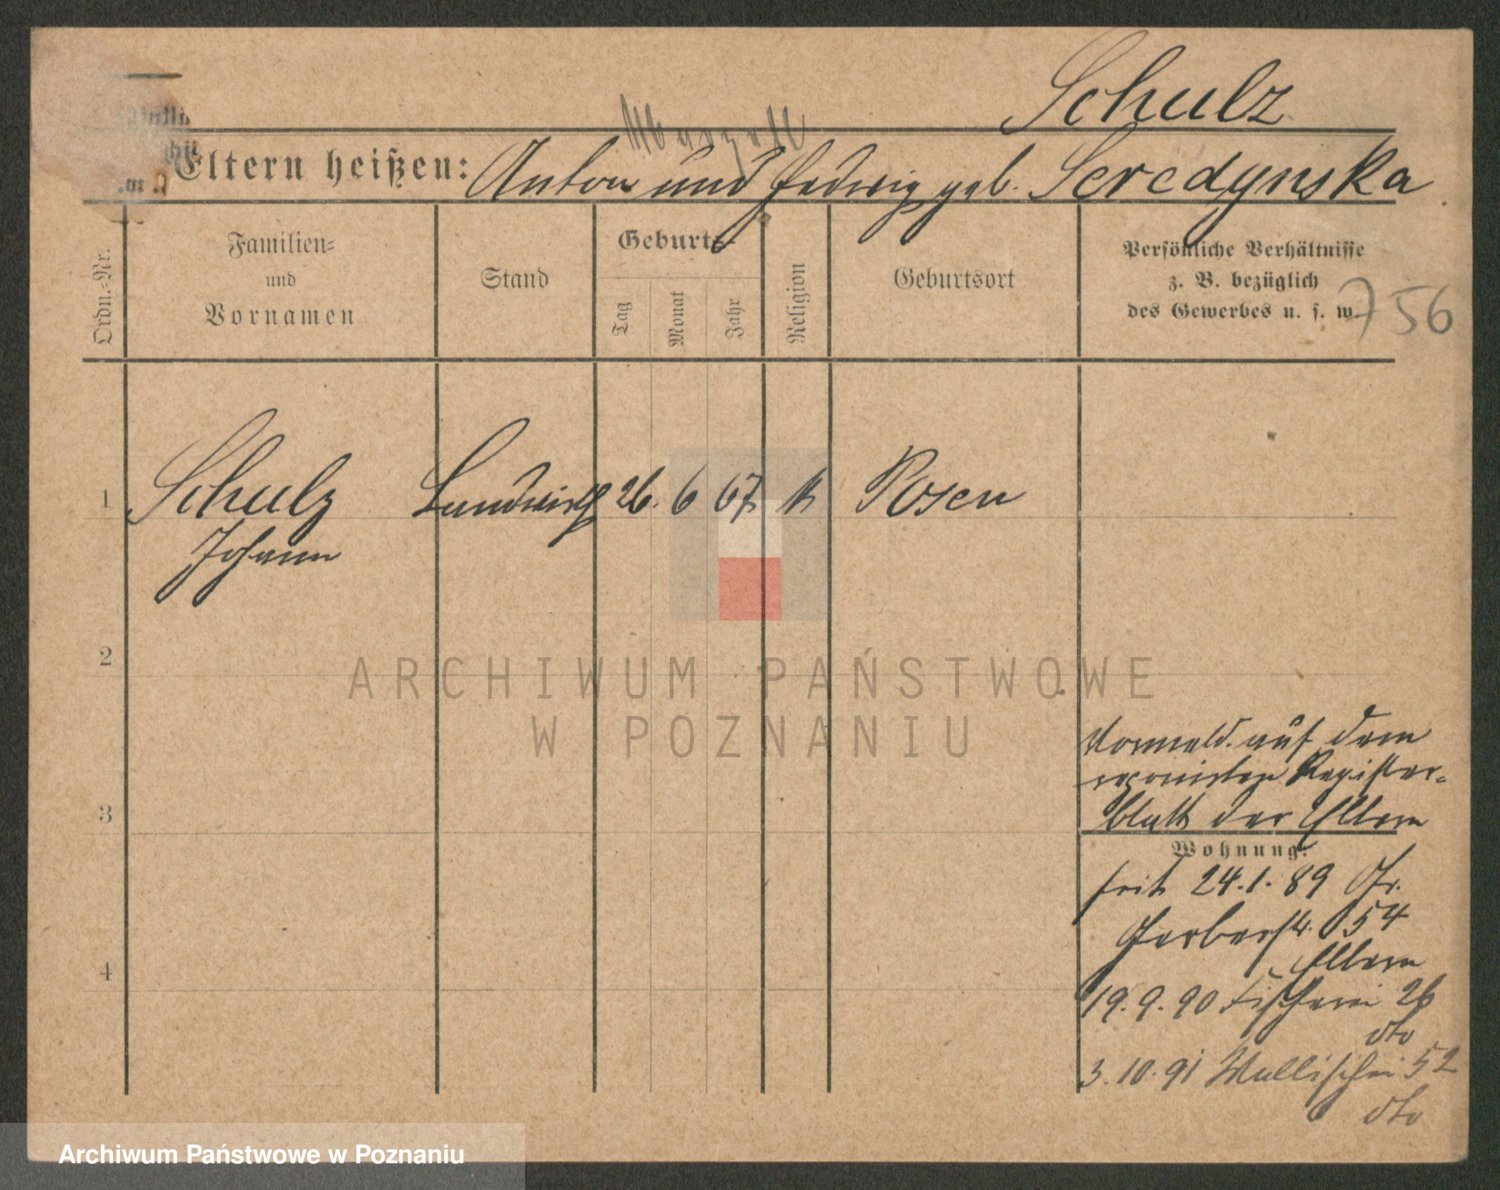 Schulz
Eltern heißen: Anton und Hedwig geb. Seredynska
Ordn.-Nr.
Familien-
und
Vornamen
Stand
Geburts-
Tag
Monat
Jahr
Religion
Geburtsort
Persönliche Verhältnisse
z. B. bezüglich
des Gewerbes u. s. w.
756
1 Schulz Landwirth 26. 6 67 k Posen
Johann
2
3
4
ARCHIWUM PAŃSTWOWE
W POZNANIU
auf dem
Register-
blatt der Eltern
Wohnung:
seit 24.1.89 Gr.
Gerberstr. 54
Eltern
19.9.90 Fischerei 26
dto
3.10.91 Wallischei 52
dto
Archiwum Państwowe w Poznaniu